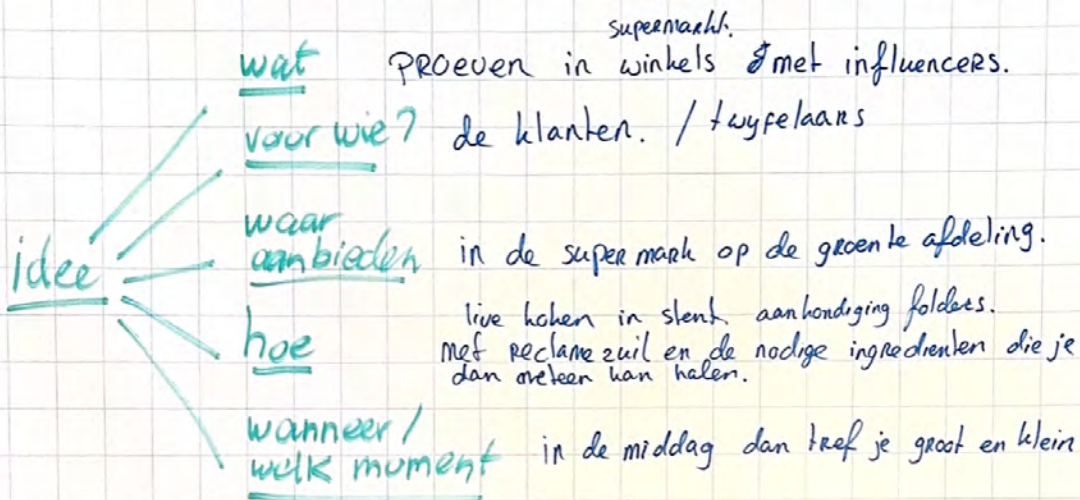 supermarkt.
wat PROEVEN in winkels & met influencers.
voor wie? de klanten. / twyfelaars
waar
aanbieden in de supermark op de groente afdeling.
idee
live koken in stent aankondiging folders.
hoe met Reclame zuil en de nodige ingredienten die je
dan meteen kan halen.
wanneer /
welk mument in de middag dan tref je groot en klein